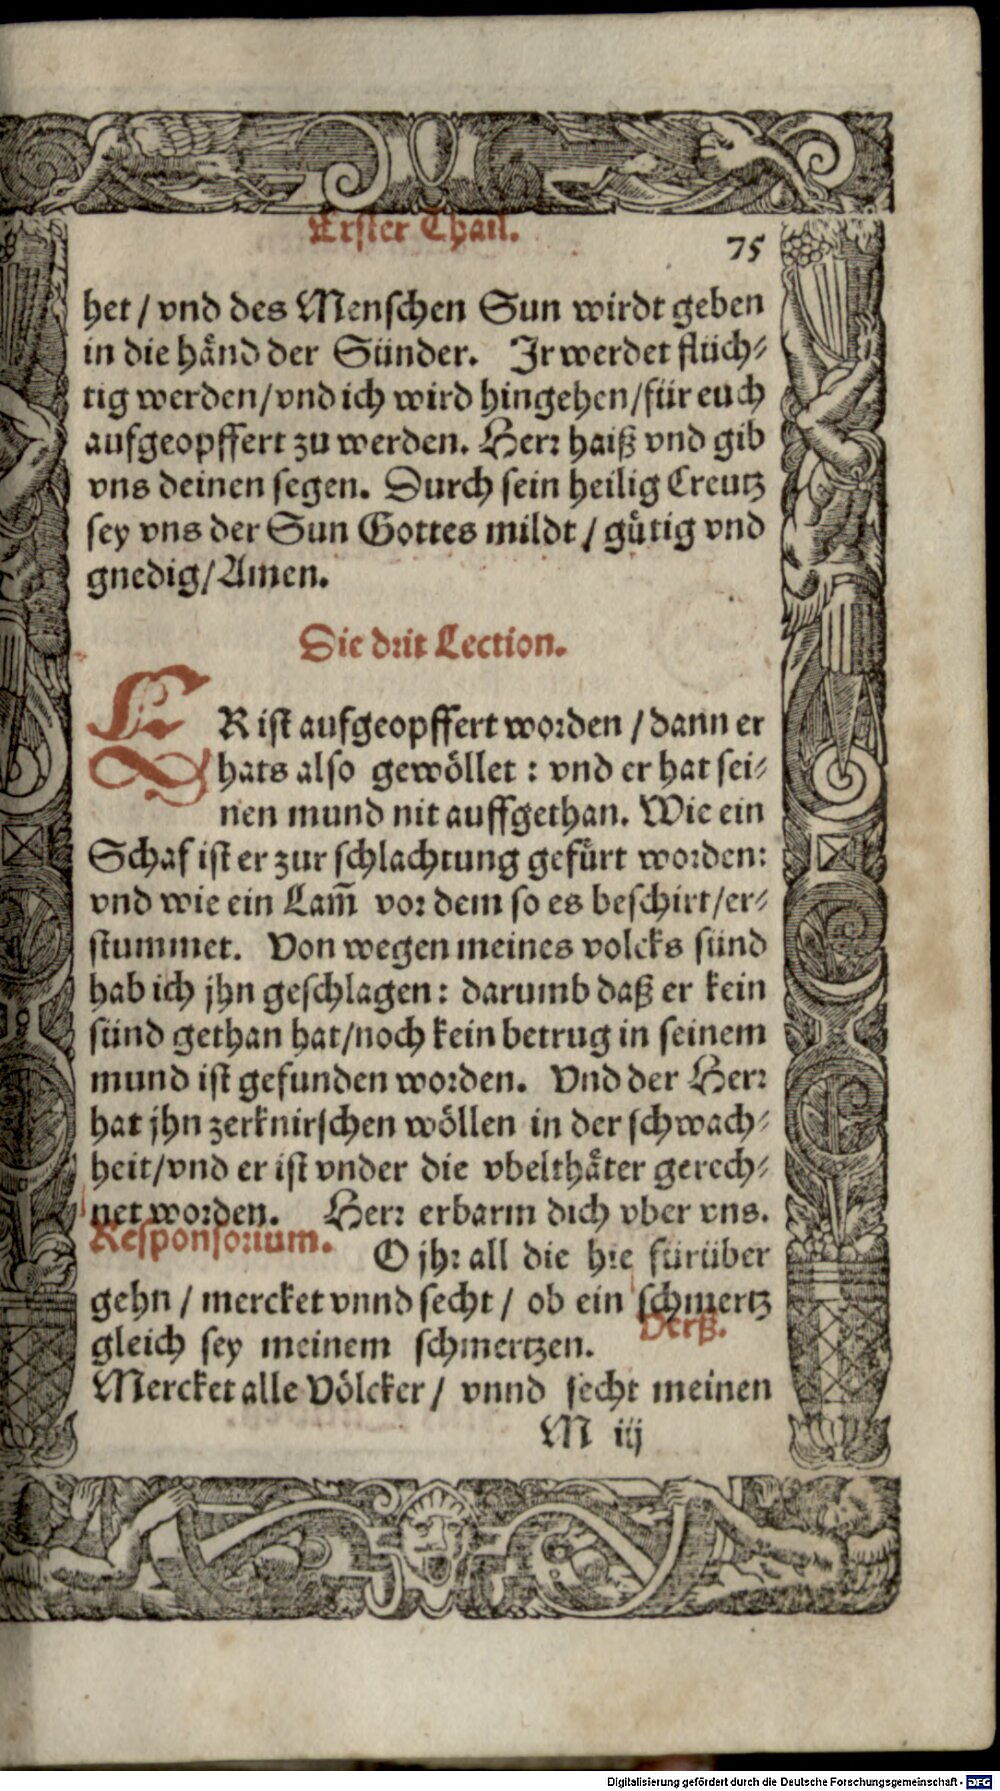 Erster Thail.
75
het / vnd des Menschen Sun wirdt geben
in die händ der Sünder. Ir werdet flüch⸗
tig werden/vnd ich wird hingehen/für euch
aufgeopffert zu werden. Herr haiß vnd gib
vns deinen segen. Durch sein heilig Creutz
sey vns der Sun Gottes mildt / gütig vnd
gnedig/Amen.
Die drit Lection.
ER ist aufgeopffert worden / dann er
hats also gewöllet : vnd er hat sei⸗
nen mund nit auffgethan. Wie ein
Schaf ist er zur schlachtung gefürt worden:
vnd wie ein Lam̄ vor dem so es beschirt/er⸗
stummet. Von wegen meines volcks sünd
hab ich jhn geschlagen: darumb daß er kein
sünd gethan hat/noch kein betrug in seinem
mund ist gefunden worden. Vnd der Herr
hat jhn zerknirschen wöllen in der schwach⸗
heit/vnd er ist vnder die vbelthäter gerech⸗
net worden. Herr erbarm dich vber vns.
Responsorium. O jhr all die hie fürüber
gehn / mercket vnnd secht / ob ein schmertz
gleich sey meinem schmertzen. Verß.
Mercket alle Völcker / vnnd secht meinen
M iij
Digitalisierung gefördert durch die Deutsche Forschungsgemeinschaft - DFG